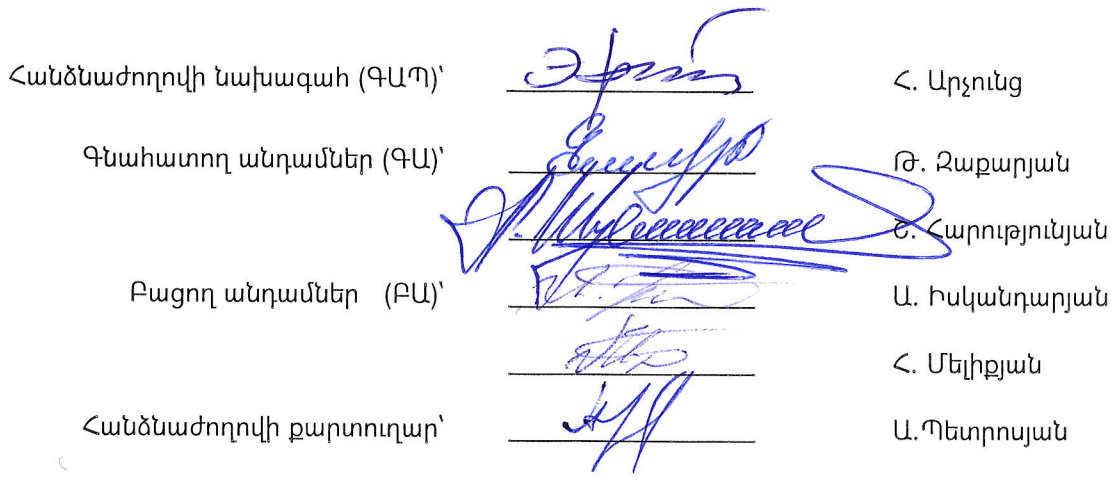 Հանձնաժողովի նախագահ (ԳԱՊ)՝ Հ. Արչունց
Գնահատող անդամներ (ԳԱ)՝ Թ. Զաքարյան
Շ. Հարությունյան
Բացող անդամներ (ԲԱ)՝ Ա. Իսկանդարյան
Հ. Մելիքյան
Հանձնաժողովի քարտուղար՝ Ա.Պետրոսյան